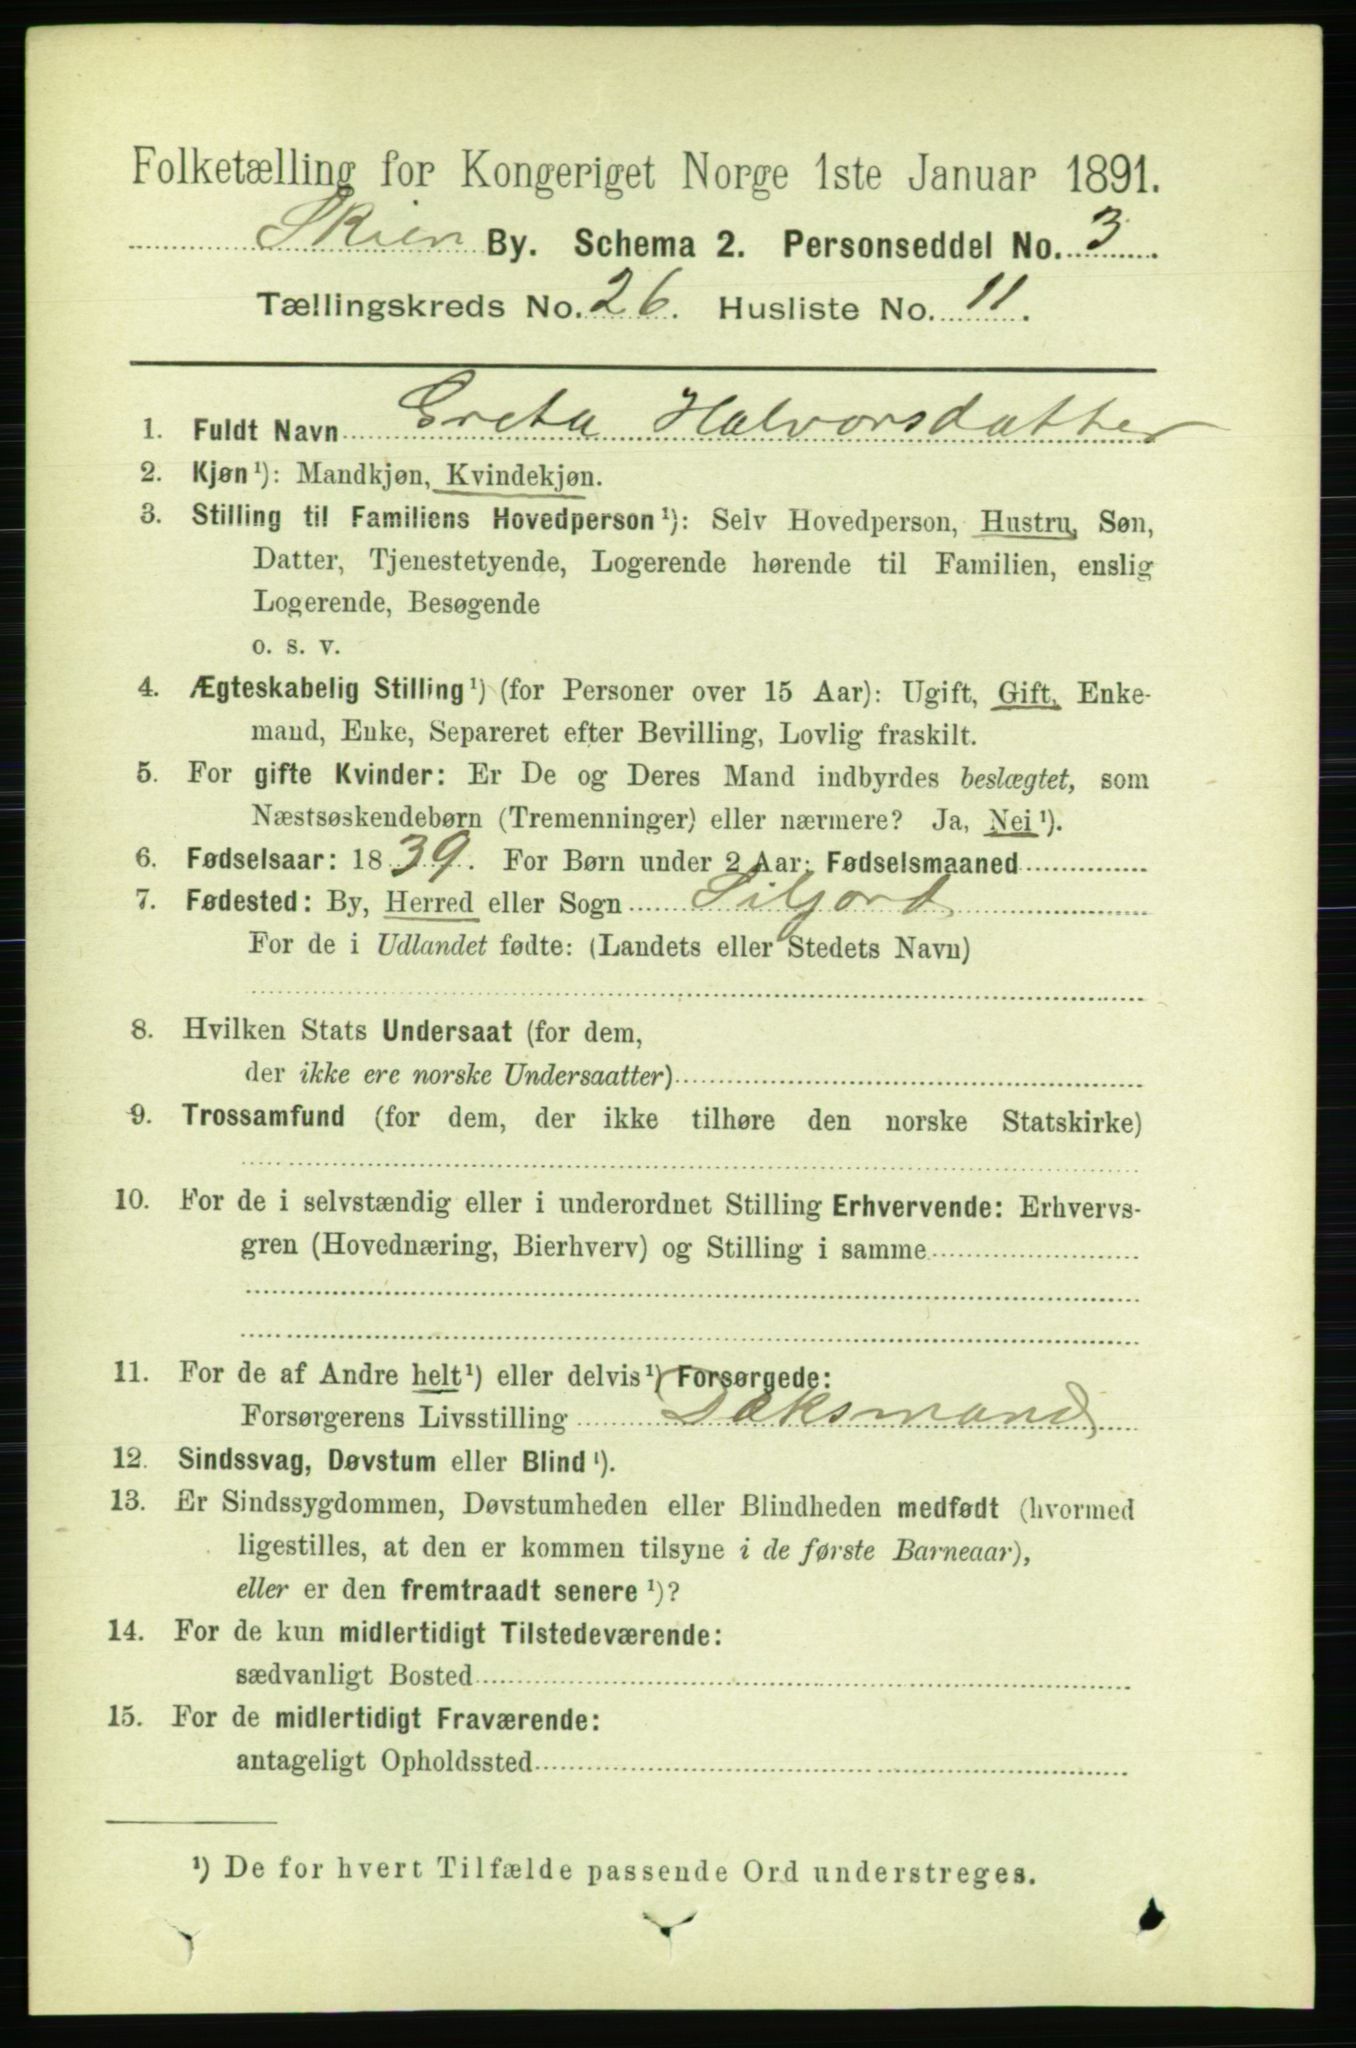 Folketælling for Kongeriget Norge 1ste Januar 1891.
Skien By. Schema 2. Personseddel No. 3.
Tællingskreds No. 26. Husliste No. 11.
1. Fuldt Navn Greta Halvorsdatter
2. Kjøn¹): Mandkjøn, Kvindekjøn.
3. Stilling til Familiens Hovedperson¹): Selv Hovedperson, Hustru, Søn,
Datter, Tjenestetyende, Logerende hørende til Familien, enslig
Logerende, Besøgende
o. s. v.
4. Ægteskabelig Stilling¹) (for Personer over 15 Aar): Ugift, Gift, Enke-
mand, Enke, Separeret efter Bevilling, Lovlig fraskilt.
5. For gifte Kvinder: Er De og Deres Mand indbyrdes beslægtet, som
Næstsøskendebørn (Tremenninger) eller nærmere? Ja, Nei¹).
6. Fødselsaar: 1839. For Børn under 2 Aar: Fødselsmaaned
7. Fødested: By, Herred eller Sogn Siljord
For de i Udlandet fødte: (Landets eller Stedets Navn)
8. Hvilken Stats Undersaat (for dem,
der ikke ere norske Undersaatter)
9. Trossamfund (for dem, der ikke tilhøre den norske Statskirke)
10. For de i selvstændig eller i underordnet Stilling Erhvervende: Erhvervs-
gren (Hovednæring, Bierhverv) og Stilling i samme
11. For de af Andre helt¹) eller delvis¹) Forsørgede:
Forsørgerens Livsstilling Dæksmand
12. Sindssvag, Døvstum eller Blind¹).
13. Er Sindssygdommen, Døvstumheden eller Blindheden medfødt (hvormed
ligestilles, at den er kommen tilsyne i de første Barneaar),
eller er den fremtraadt senere¹)?
14. For de kun midlertidigt Tilstedeværende:
sædvanligt Bosted
15. For de midlertidigt Fraværende:
antageligt Opholdssted
¹) De for hvert Tilfælde passende Ord understreges.